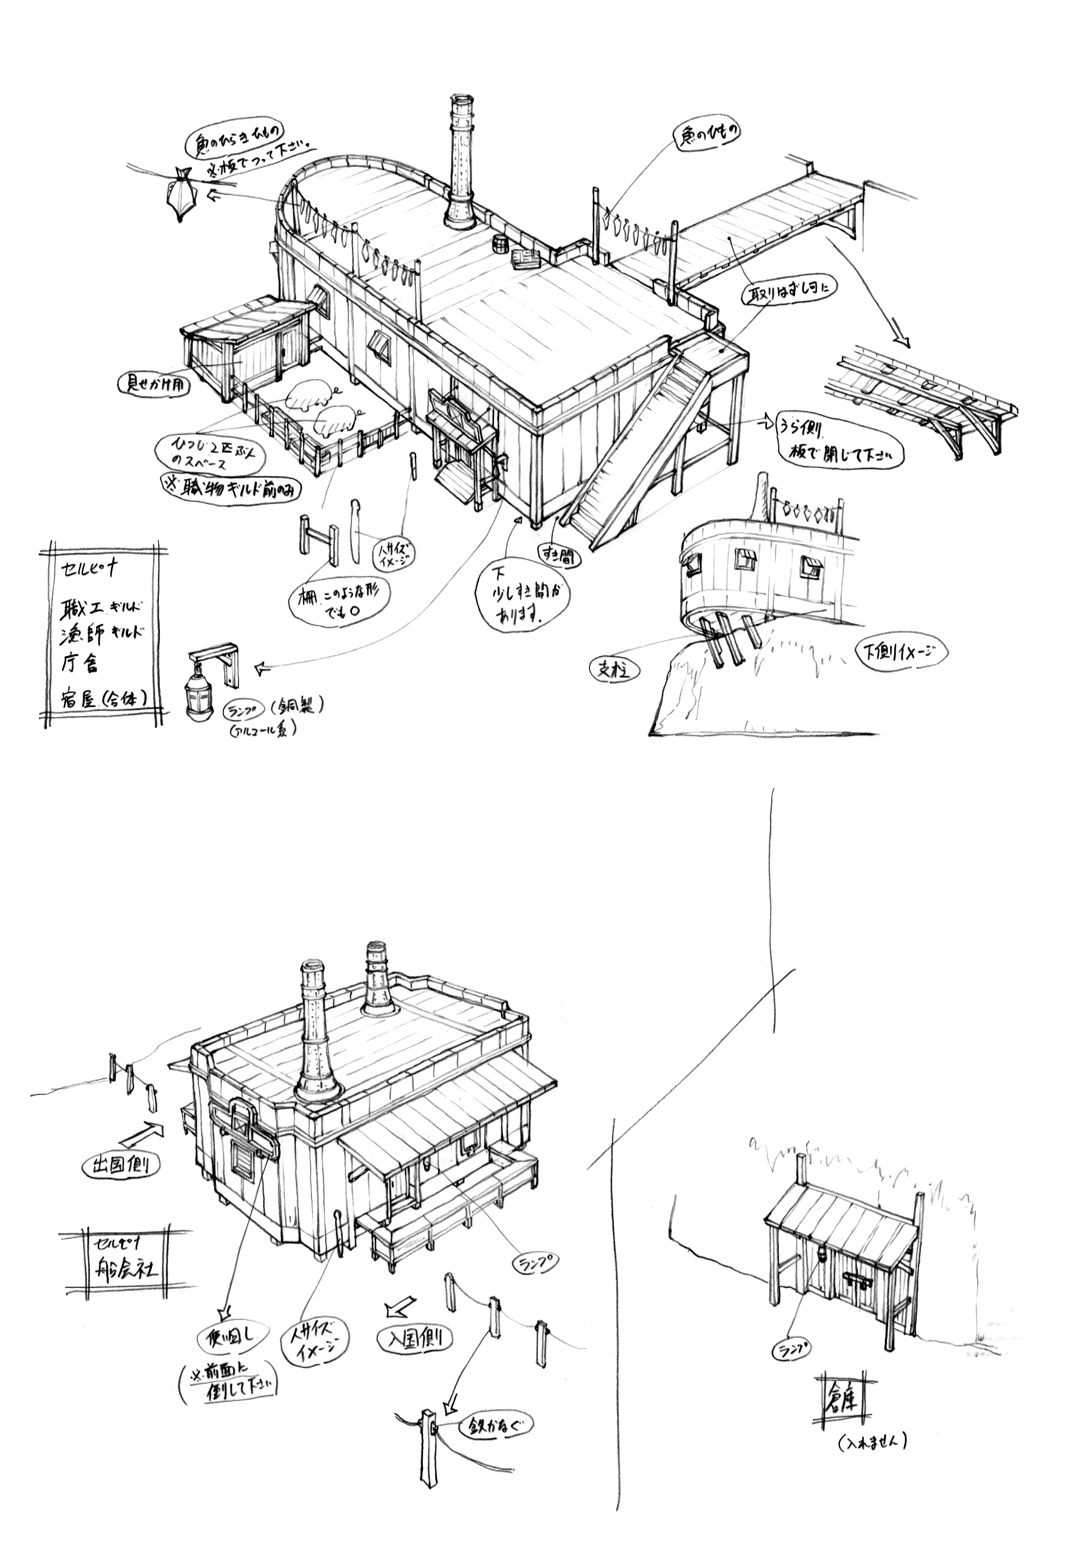 魚のひらきひもの
※板でつって下さい。
魚のひもの
取りはずし可に
見せかけ用
ひつじ2匹ぶん
のスペース
※職物ギルド前のみ
うら側
板で閉じて下さい
人サイズ
イメージ
すき間
柵 このような形
でも○
下
少しすき間が
あります。
支柱
下側イメージ
セルピナ
職工ギルド
漁師ギルド
庁舎
宿屋(合体)
ランプ(銅製)
(アルコール系)
出国側
セルピナ
船会社
使い回し
(※前面に
倒して下さい)
人サイズ
イメージ
入国側
ランプ
鉄かなぐ
ランプ
倉庫
(入れません)